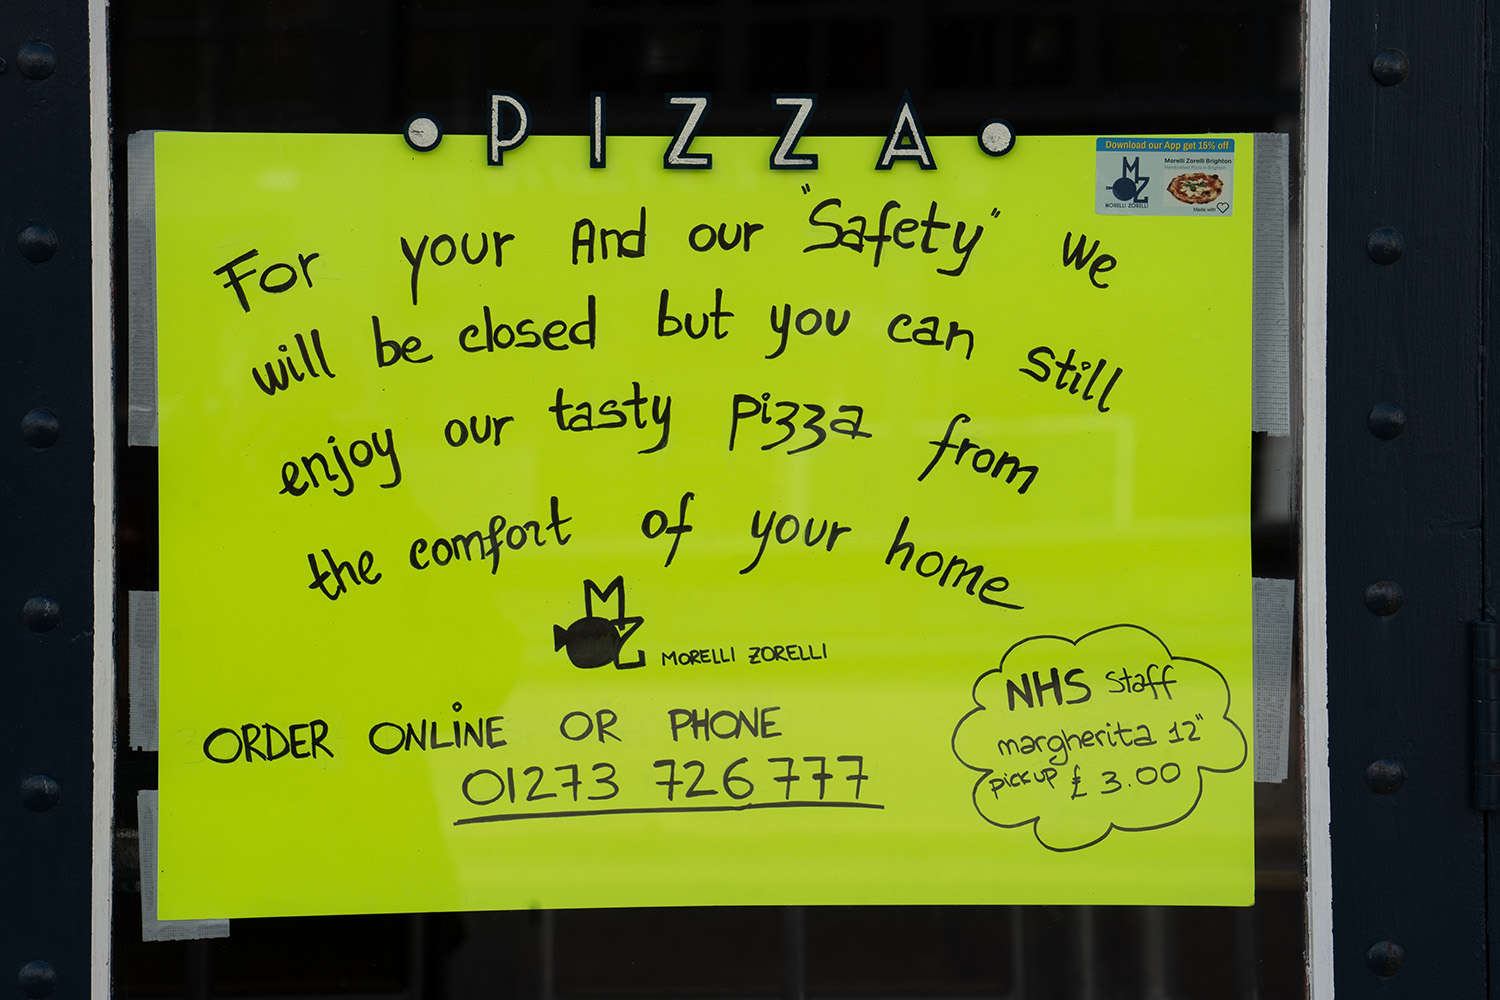 • PIZZA •
Download our App get 15% off
Morelli Zorelli Brighton
Handcrafted Pizza in Brighton
MZ
MORELLI ZORELLI
Made with
For your And our "Safety" We
will be closed but you can still
enjoy our tasty pizza from
the comfort of your home
MZ
MORELLI ZORELLI
ORDER ONLINE OR PHONE
01273 726 777
NHS Staff
margherita 12"
pick up £ 3.00